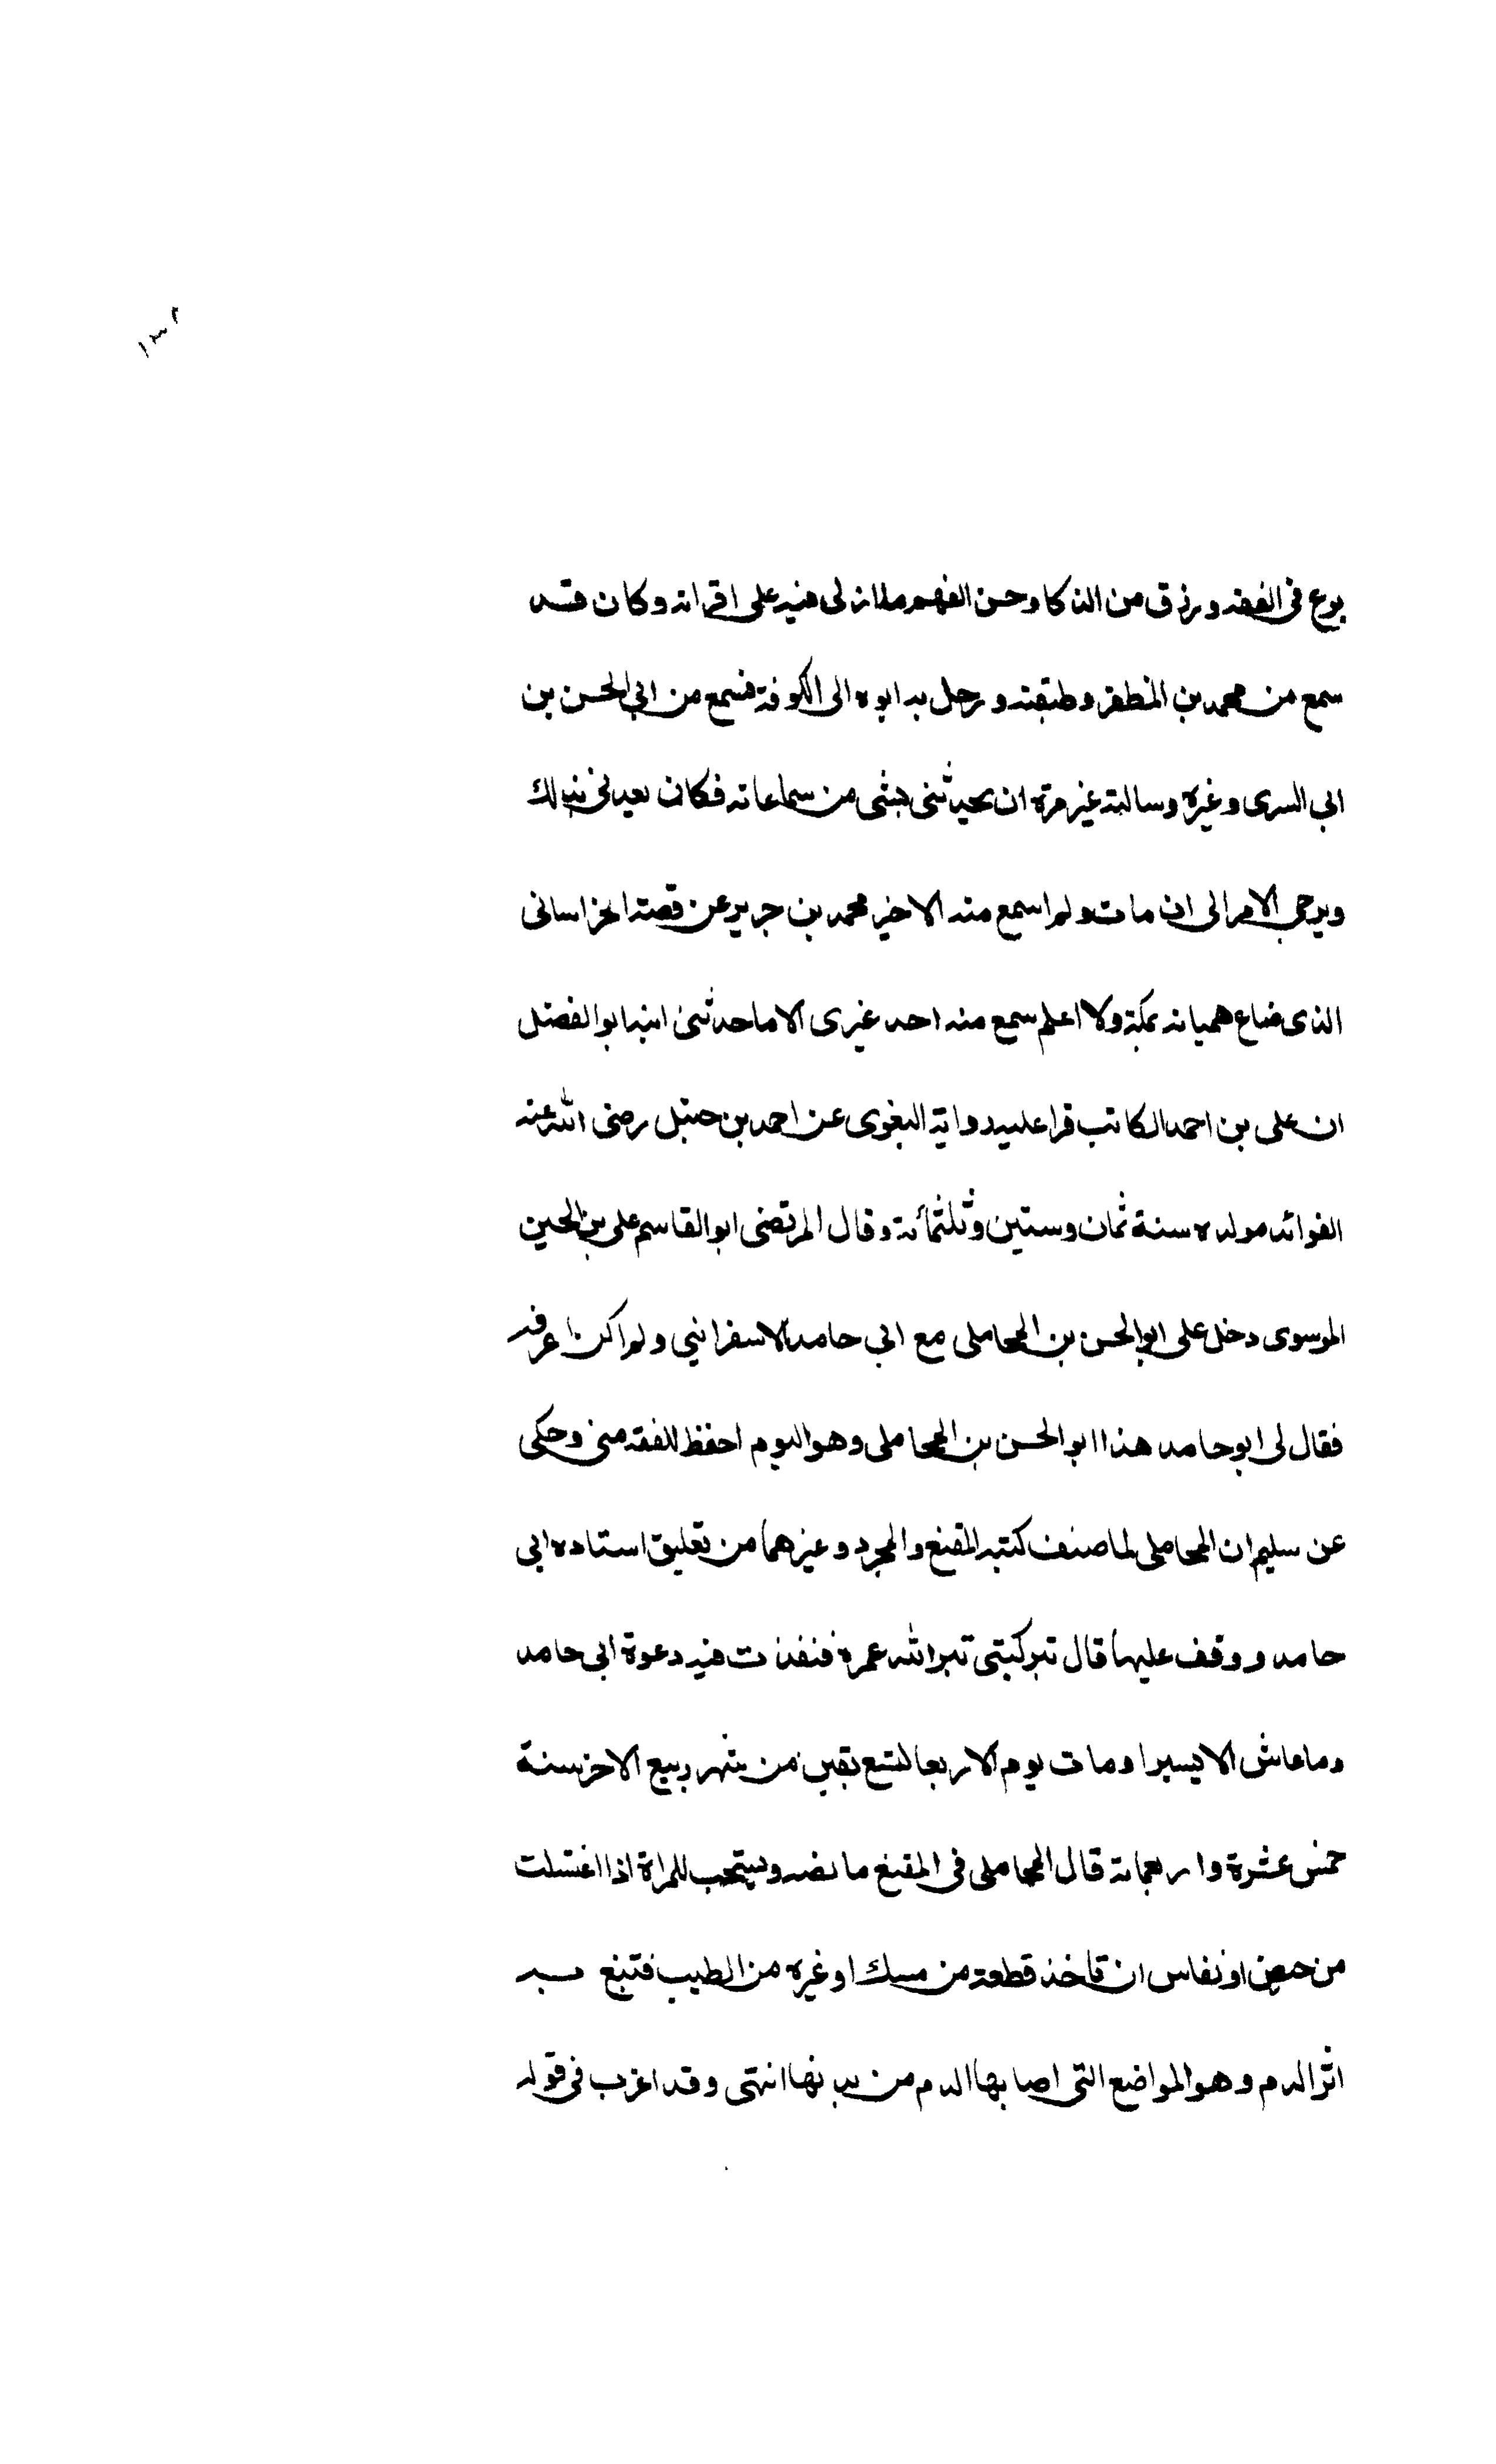 ١٣٢
برع فى الفقه ورزق من الذكا وحسن الفهم ما ازلى فيه على اقرانه وكان قد
سمع من محمد بن المظفر وطبقته ورحل به ابوه الى الكوفة فسمع من ابي الحسن بن
ابى السرى وغيره وسالته غير مرة ان يحدثنى بشى من سماعاته فكان يعدنى بذلك
ويرجى الامر الى ان مات ولم اسمع منه الا خبر محمد بن جرير عن قصة الخراسانى
الذى ضاع هميانه بمكة ولا اعلم سمع منه احد غيرى الا ما حدثنى ابنه ابو الفضل
ان على بن احمد الكاتب قرا عليه رواية البغوى عن احمد بن حنبل رضى الله عنه
الفوائد مولده سنة ثمان وستين وثلثمائة وقال المرتضى ابو القاسم على بن الحسين
الموسوى دخل على ابو الحسن بن المحاملى مع ابي حامد الاسفرانيي ولم اكن اعرفه
فقال لى ابو حامد هذا ابو الحسن بن المحاملى وهو اليوم احفظ للفقه منى وحكى
عن سليم ان المحاملى لما صنف كتبه المقنع والمجرد وغيرهما من تعليق استاده ابى
حامد ووقف عليها قال تبر كتبى تبر الله عمره فنفذت فيه دعوة ابى حامد
وما عاش الا يسيرا ومات يوم الاربعا لتسع بقين من شهر ربيع الاخر سنة
خمس عشرة واربعماية قال المحاملى فى المقنع ما نصه ويستحب للمراة اذا اغتسلت
من حيض او نفاس ان تاخذ قطعة من مسك او غيره من الطيب فتبتغ به
اثر الدم وهو المواضع التى اصابها الدم من بدنها انتهى وقد اغرب فى قوله